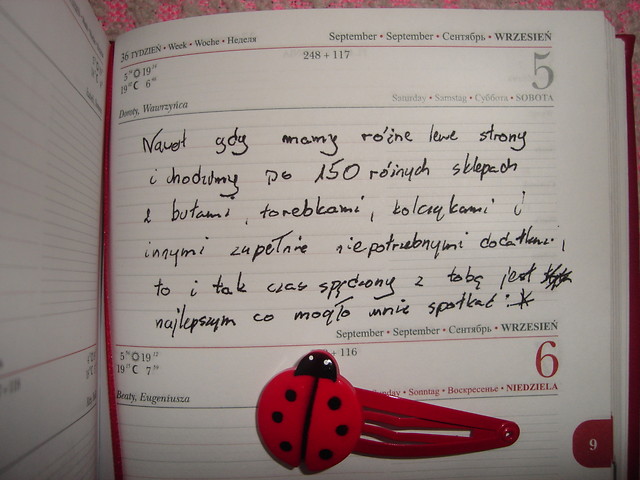 36 TYDZIEŃ • Week • Woche • Неделя
September • September • Сентябрь • WRZESIEŃ
248 + 117
5
19
19 C 6
Saturday • Samstag • Суббота • SOBOTA
Doroty, Wawrzyńca
Nawet gdy mamy różne lewe strony
i chodzimy po 150 różnych sklepach
z butami, torebkami, kolczykami i
innymi zupełnie niepotrzebnymi dodatkami,
to i tak czas spędzony z tobą jest
najlepszym co mogło mnie spotkać :*
September • September • Сентябрь • WRZESIEŃ
+ 116
6
5 19
19 C 7
nday • Sonntag • Воскресенье • NIEDZIELA
Beaty, Eugeniusza
9